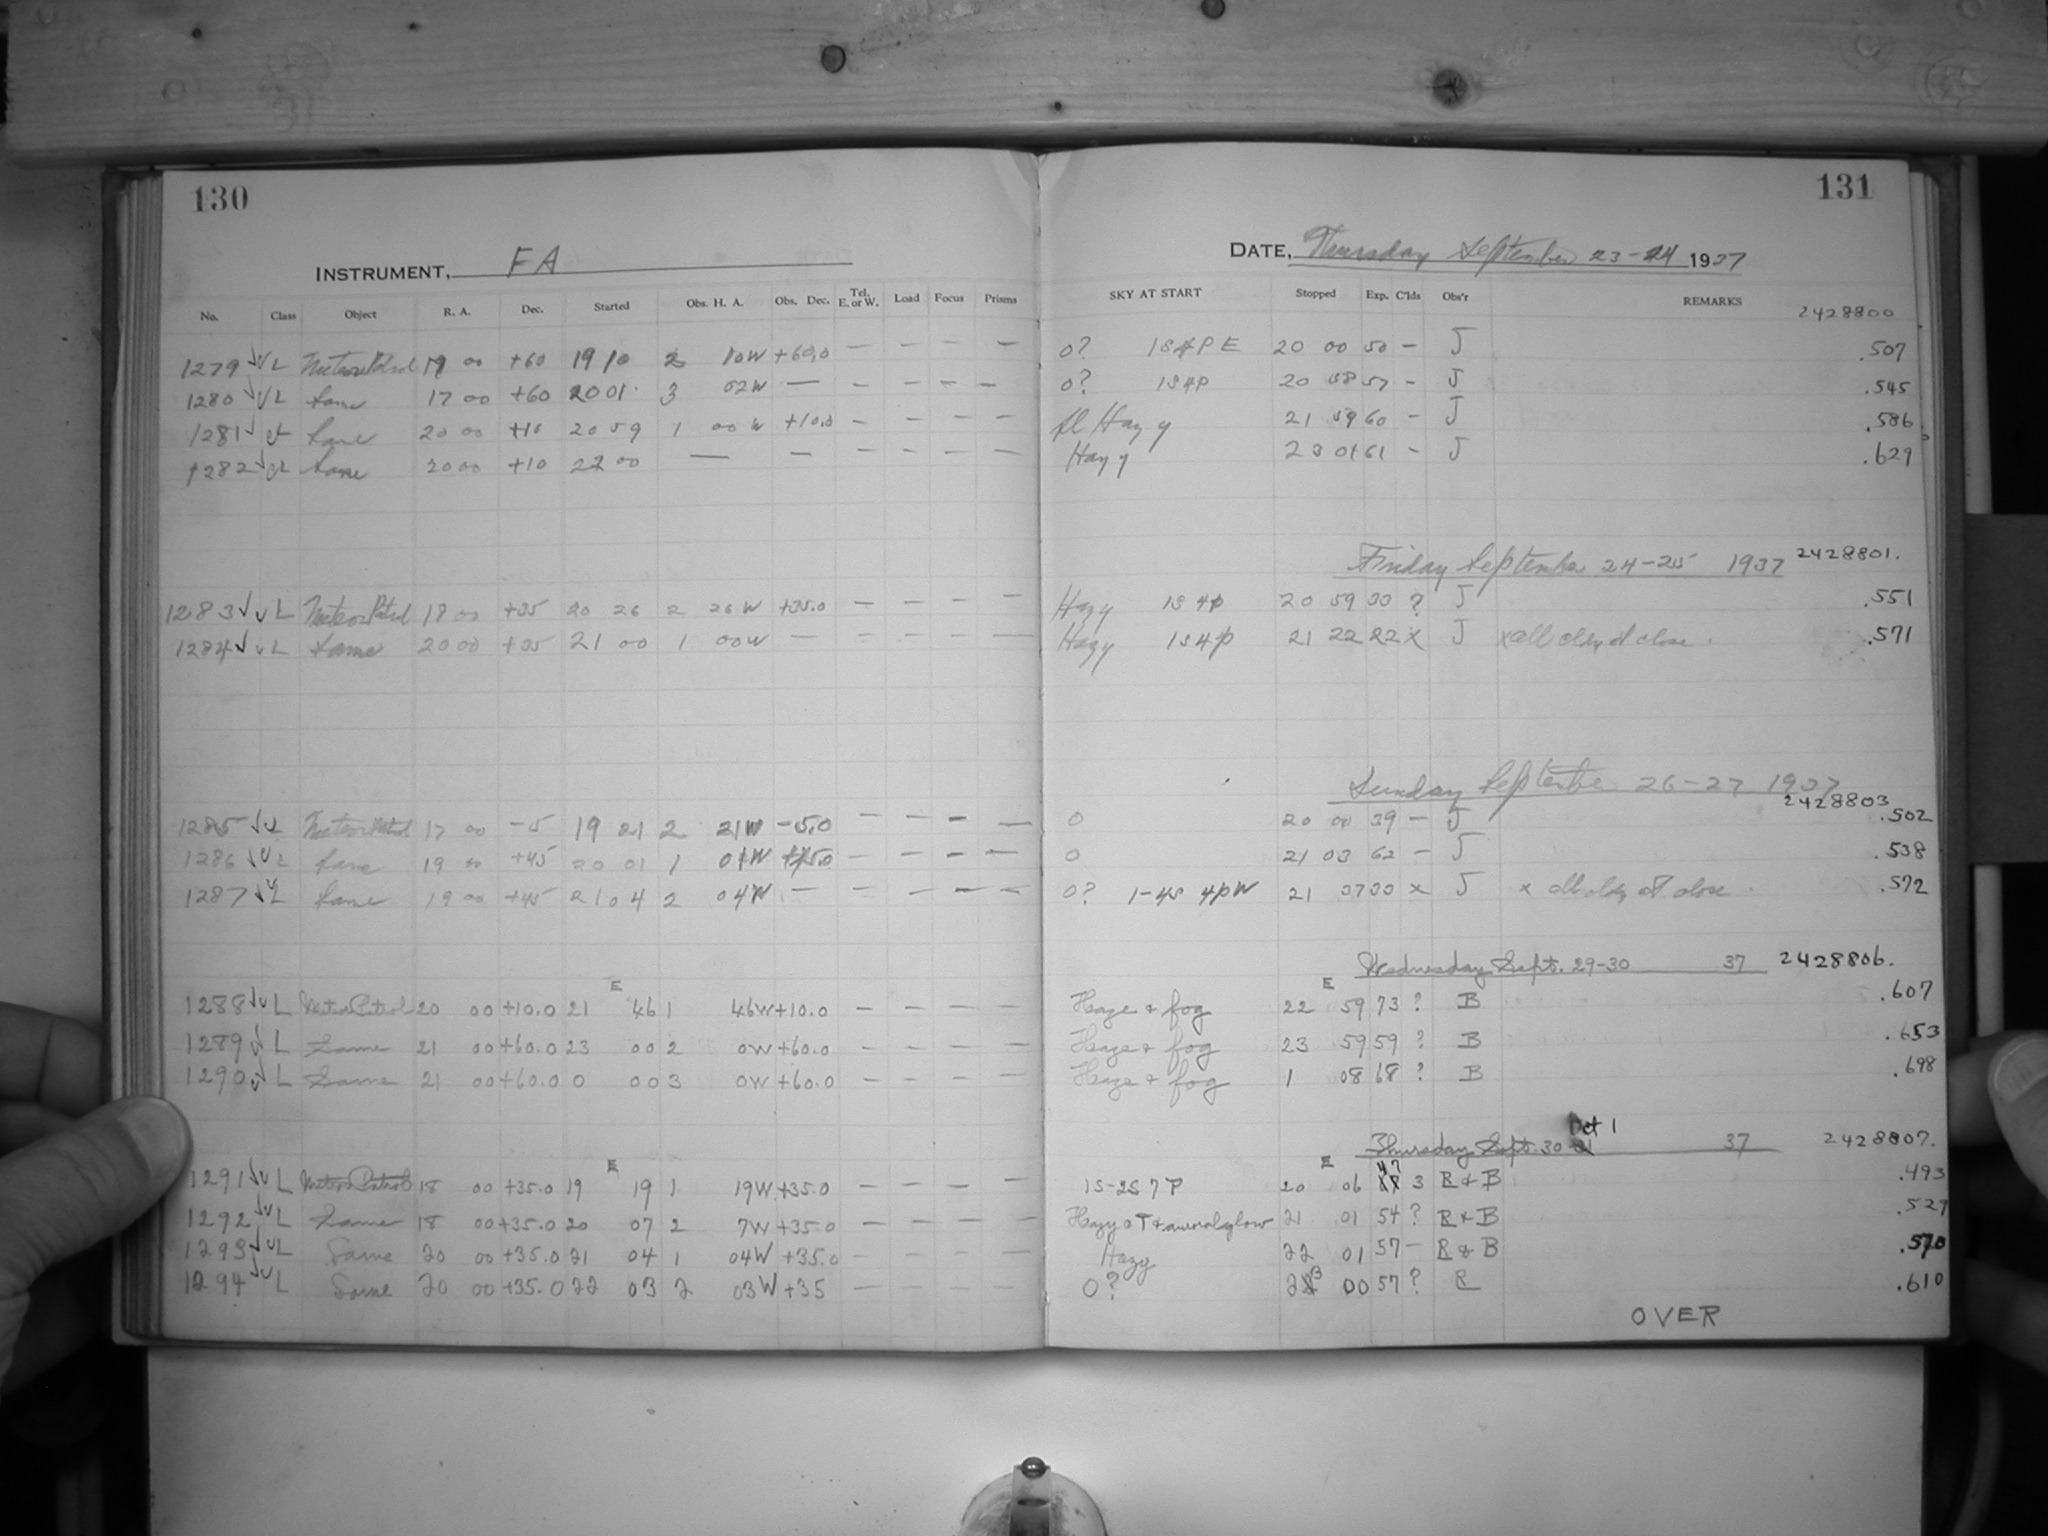 130
131
INSTRUMENT, FA
DATE, Thursday September 23-24 1937
No. Class Object R. A. Dec. Started Obs. H. A. Obs. Dec. Tel. E. or W. Load Focus Prisms
SKY AT START Stopped Exp. C'lds Obs'r REMARKS 2428800
1279 √ L Meteor Patrol 00 +60 19 10 2 10W +60.0 — — — — 0? 1S4PE 20 00 50 — J .507
1280 √ L Same 17 00 +60 20 01 3 02W — — — — — 0? 1S4P 20 58 57 — J .545
1281 √ L Same 20 00 +10 20 59 1 00W +10.0 — — — — sl Hazy 21 59 60 — J .586
1282 √ L Same 20 00 +10 22 00 — — — — — — Hazy 23 01 61 — J .629
Friday September 24-25 1937 2428801.
1283 √ L Meteor Patrol 18 00 +35 20 26 2 26W +35.0 — — — — Hazy 1S4P 20 59 33 ? J .551
1284 √ L Same 20 00 +35 21 00 1 00W — — — — — Hazy 1S4P 21 22 22 x J x all cldy at close. .571
Sunday September 26-27 1937
2428803
1285 √ L Meteor Patrol 17 00 -5 19 21 2 21W -5.0 — — — — 0 20 00 39 — J .502
1286 √ L Same 19 00 +45 20 01 1 01W +45.0 — — — — 0 21 03 62 — J .538
1287 √ L Same 19 00 +45 21 04 2 04W — — — — — 0? 1-4S 4PW 21 37 33 x J x all cldy at close. .572
Wednesday Sept. 29-30 37 2428806.
E E
1288 √ L Meteor Patrol 20 00 +10.0 21 46 1 46W +10.0 — — — — Haze & fog 22 59 73 ? B .607
1289 √ L Same 21 00 +60.0 23 00 2 0W +60.0 — — — — Haze & fog 23 59 59 ? B .653
1290 √ L Same 21 00 +60.0 0 00 3 0W +60.0 — — — — Haze & fog 1 08 68 ? B .698
Thursday Sept. 30 Oct 1 37 2428807.
E E
1291 √ L Meteor Patrol 18 00 +35.0 19 19 1 19W +35.0 — — — — 1S-2S 7P 20 06 47 3 R & B .493
1292 √ L Same 18 00 +35.0 20 07 2 7W +35.0 — — — — Hazy & auroral glow 21 01 54 ? R & B .529
1293 √ L Same 20 00 +35.0 21 04 1 04W +35.0 — — — — Hazy 22 01 57 — R & B .570
1294 √ L Same 20 00 +35.0 22 03 2 03W +35 — — — — 0? 23 00 57 ? R .610
OVER